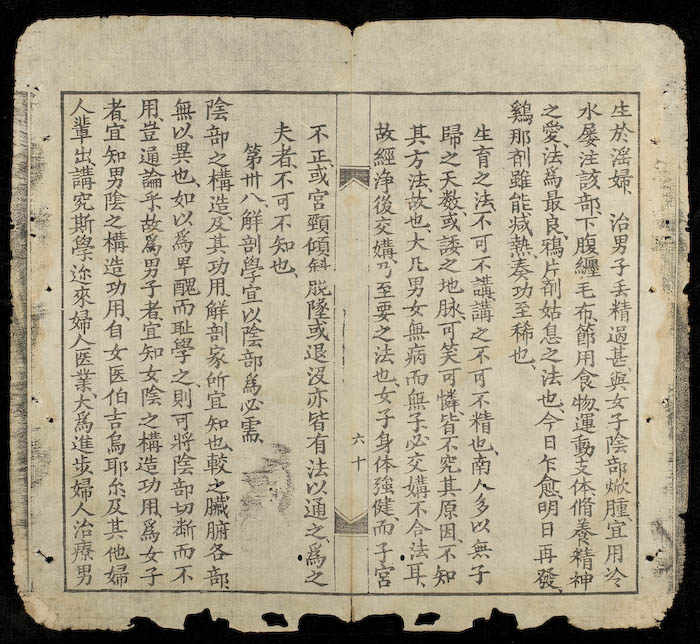 生於滛婦、　治男子丢精過甚、與女子陰部焮腫、宜用冷
水屡注該部、下腹纏毛布、節用食物、運動支体、脩養精神
之愛、法為最良、鴉片剤姑息之法也、今日乍愈、明日再發、
鷄那剤雖能减熱、奏功至稀也、
生育之法不可不講、講之不可不精也、南人多以無子
歸之天数、或諉之地脉、可笑可憐、皆不究其原因、不知
其方法、故也、大凡男女無病而無子、必交媾不合法耳、
故經浄後交媾、乃至要之法也、女子身体強健、而子宮
六十
不正、或宮頸傾斜、脱墜或退没、亦皆有法以通之、為之
夫者、不可不知也、
第卅八解剖學宜以陰部為必需、
陰部之構造、及其功用、解剖家所宜知也、較之臓腑各部、
無以異也、如以為卑醜而耻學之、則可將陰部切断而不
用、豈通論乎、故為男子者、宜知女陰之構造功用、為女子
者、宜知男陰之構造功用、自女医伯吉烏耶尓及其他婦
人輩出、講究斯學、迩來婦人医業、大為進歩、婦人治療男